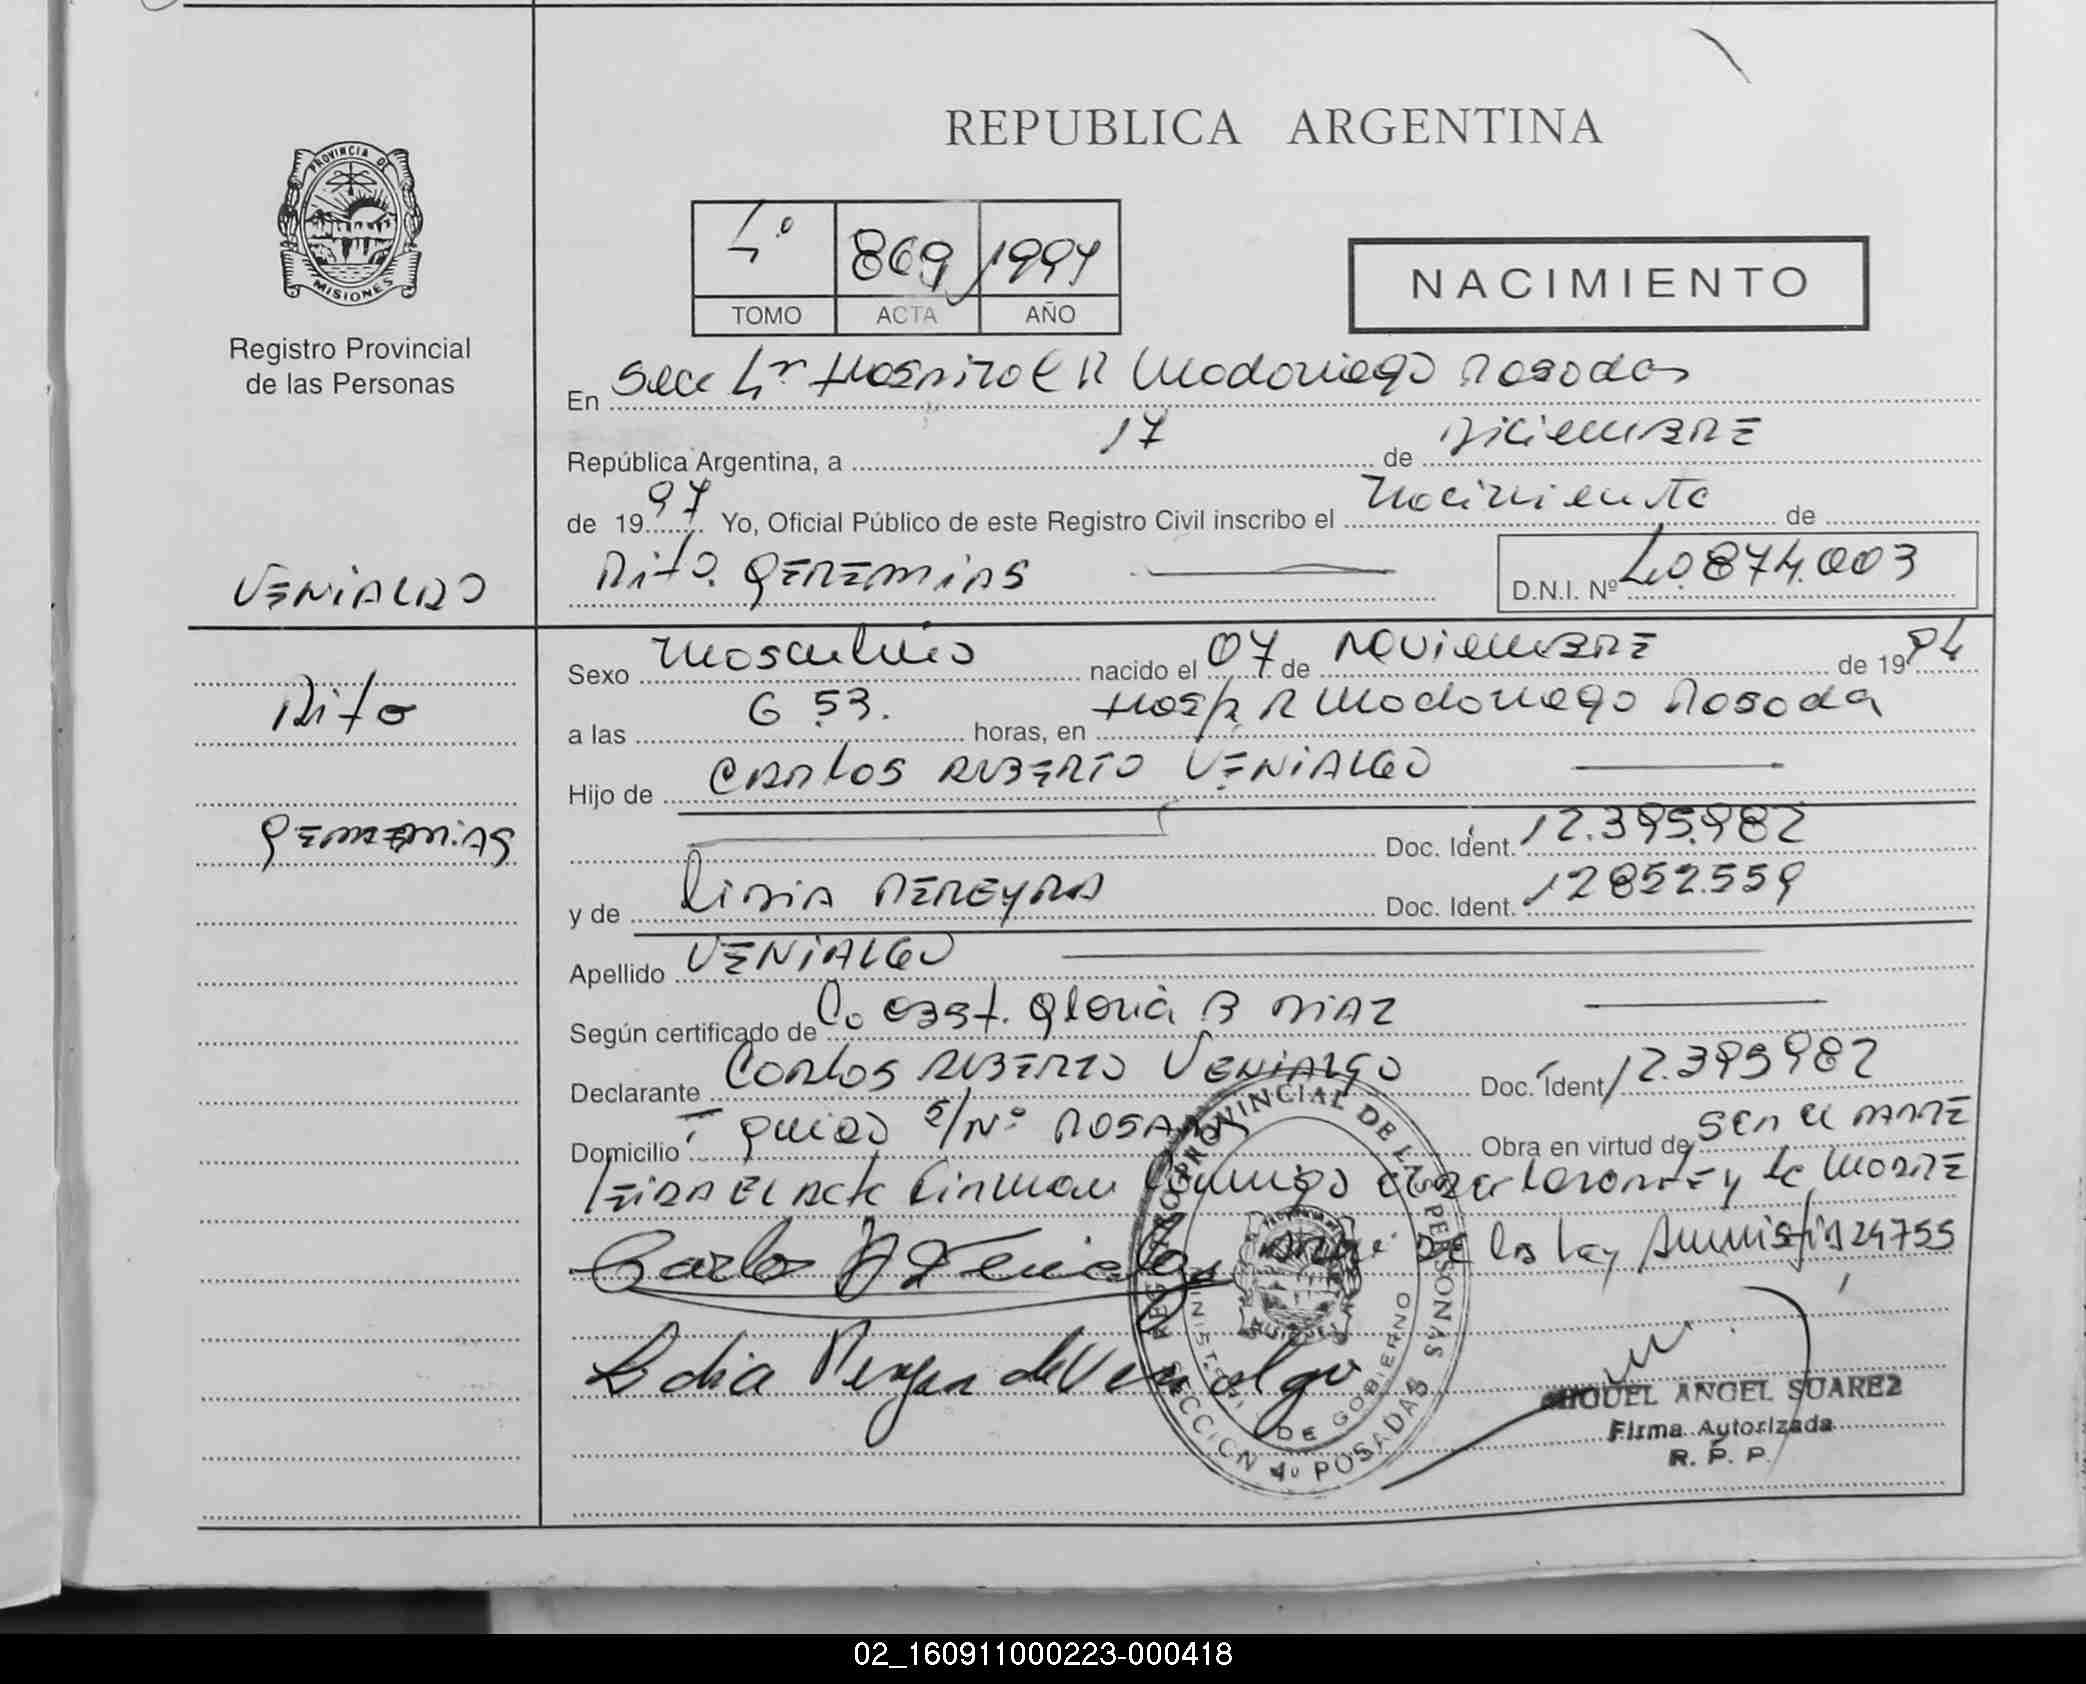 REPUBLICA ARGENTINA
PROVINCIA DE
MISIONES
Registro Provincial
de las Personas
4º 869 1997
TOMO ACTA AÑO
NACIMIENTO
En Secc 4ª Hospital R Madariaga Posadas
República Argentina, a 17 de Diciembre
de 1997 Yo, Oficial Público de este Registro Civil inscribo el Nacimiento de
VENIALGO
Rito GEREMIAS
D.N.I. Nº 40.874.003
Rito
GEREMIAS
Sexo Masculino nacido el 07 de Noviembre de 1994
a las 6 53. horas, en Hosp. R Madariaga Posada
Hijo de CARLOS RUBERTO VENIALGO
Doc. Ident. 12.395.982
y de Lidia PEREYRA Doc. Ident. 12852.559
Apellido VENIALGO
Según certificado de Lo Obst. Gloria B DIAZ
Declarante Carlos RUBERTO VENIALGO Doc. Ident 12.395982
Domicilio GUIDO S/Nº POSADAS Obra en virtud de SER el PADRE
Leida El Acta Firman Conmigo el declarante y la MADRE
DE la Ley Amnistia 24755
Carlo R Venialgo
Lidia Pereyra de Venialgo
REGISTRO PROVINCIAL DE LAS PERSONAS
MINISTERIO DE GOBIERNO
SECCION 4º POSADAS
MIGUEL ANGEL SUAREZ
Firma Autorizada
R. P. P.
02_160911000223-000418